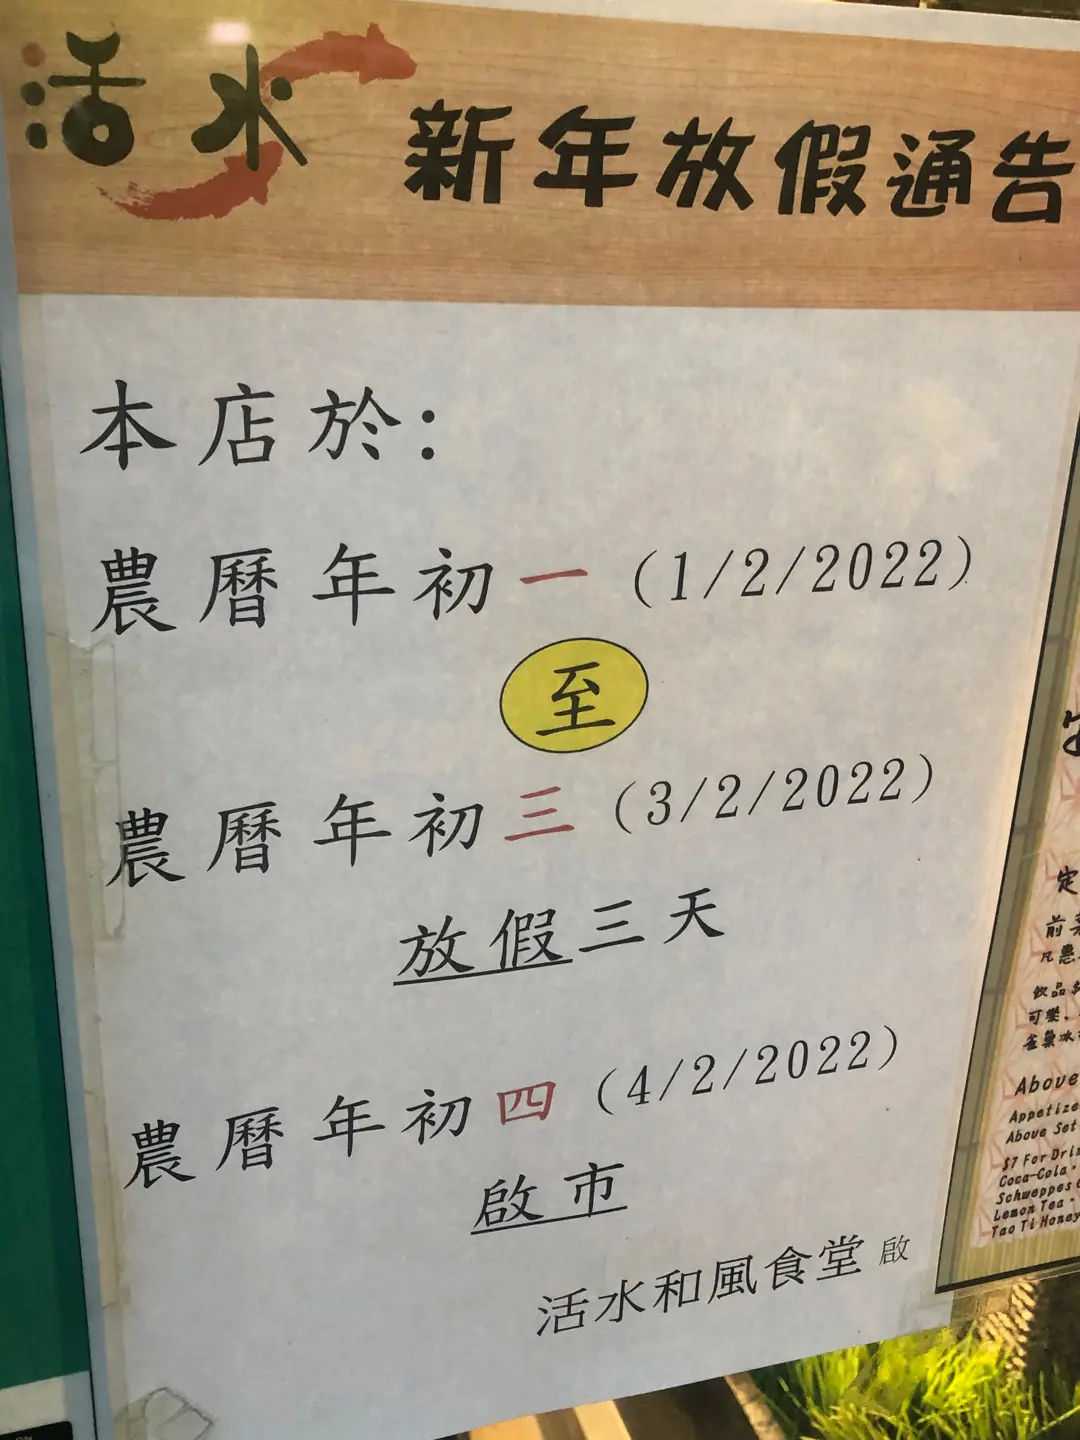 活水 新年放假通告
本店於:
農曆年初一 (1/2/2022)
至
農曆年初三 (3/2/2022)
放假三天
農曆年初四 (4/2/2022)
啟市
活水和風食堂 啟
定
前菜
凡惠
飲品
可樂,
Above
Appetize
Above Set
$7 For Drin
Coca-Cola
Schweppes
Lemon Tea
Tao Ti Honey